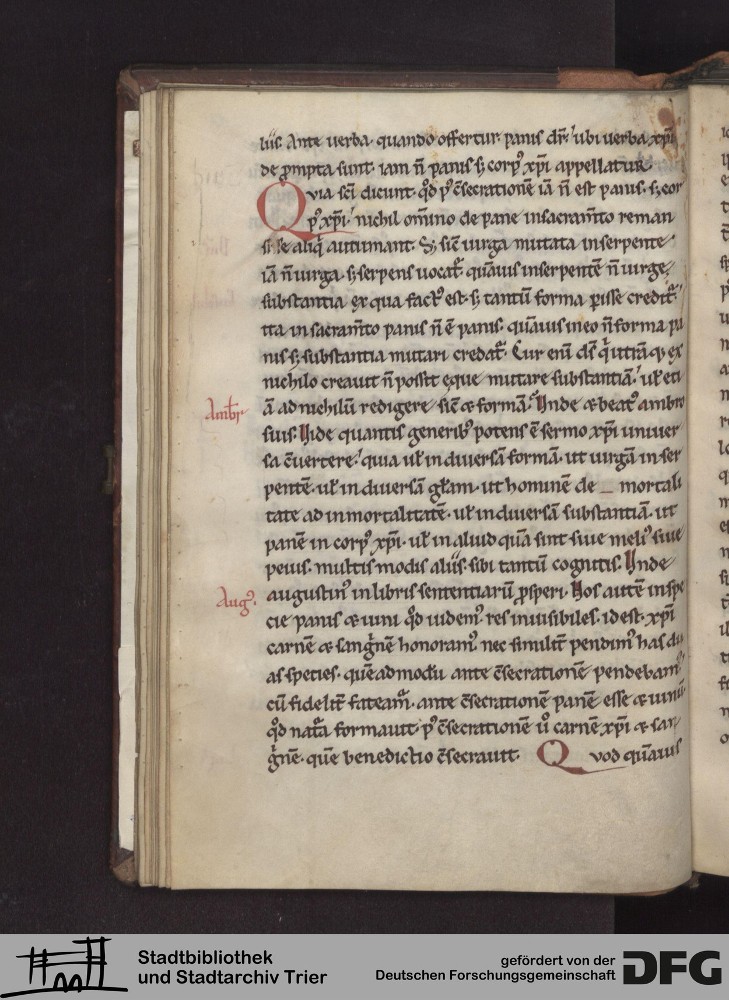 liꝰ. Ante uerba. quando offertur. panis dr̄. ubi uerba xp̄i
de ꝓmpta sunt. iam n̄ panis s; corpꝰ xp̄i appellatur.
Qvia sc̄i dicunt. qd̓ pꝰ c̄secrationē iā n̄ est panis. s; cor
pꝰ xp̄i. nichil om̄ino de pane in sacram̄to reman
si se aliq̓ autumant. S; sic̄ uirga mutata in serpente
iā n̄ uirga. s; serpens uocat᷑. quāuis in serpentē n̄ uirgę
substantia ex qua factꝰ est. s; tantū forma ꝑisse credit᷑.
ita in sacram̄to panis n̄ ē panis. quāuis in eo n̄ forma pa
nis s; substantia mutari credat᷑. Cur enī ds̄ q̓ utrāq; ex
nichilo creauit n̄ possit ęque mutare substantiā. uƚ eti
ā ad nichilū redigere sic̄ & formā. Vnde & beatꝰ ambro
Ambr̄
sius. Vide quantis generibꝰ potens ē sermo xp̄i uniuer
sa c̄uertere. quia uƚ in diuersā formā. ut uirgā in ser
pentē. uƚ in diuersā gƚam. ut hominē de _ mortali
tate ad inmortalitatē. uƚ in diuersā substantiā. ut
panē in corpꝰ xp̄i. uƚ in aliud quā sint siue meliꝰ siue
peius. multis modis aliis. sibi tantū cognitis. Vnde
Augꝰ.
augustinꝰ in libris sententiarū ꝓsperi. Nos autē in spe
cie panis & uini qd̓ uidemꝰ. res inuisibiles. id est. xp̄i
carnē & sanguinē honoramꝰ. nec similit᷑ pendimꝰ has du
as species. quēadmodū ante c̄secrationē pendebamꝰ.
cū fidelit᷑ fateam᷑. ante c̄secrationē panē esse & uinū.
qd̓ nat̄a formauit. pꝰ c̄secrationē u̓ carnē xp̄i & san
guinē. quē benedictio c̄secrauit. Qvod quāuis
Stadtbibliothek
und Stadtarchiv Trier
gefördert von der
Deutschen Forschungsgemeinschaft
DFG